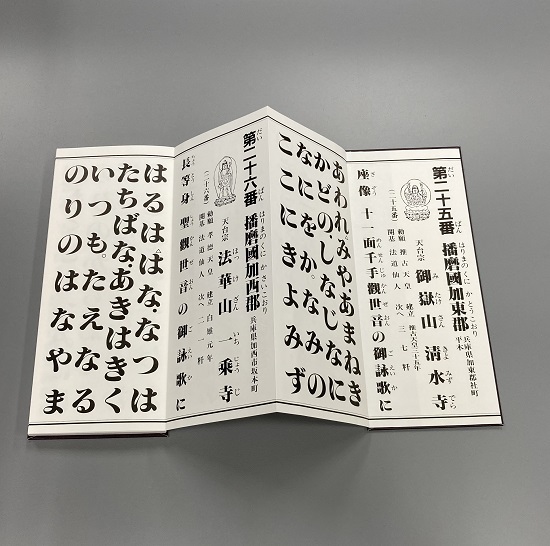 第二十五番
播磨國加東郡
兵庫縣加東郡社町
平木
天台宗
御嶽山 清水寺
みたけさん きよみずでら
(二十五番)
勅願 推古天皇 建立 推古天皇三十五年
開基 法道仙人 次へ 三七粁
座像 十一面千手觀世音の御詠歌に
あわれみやあまねき
かどのしなじなに
なにをか。なみの
ここにきよみず
第二十六番
播磨國加西郡
兵庫県加西市坂本町
天台宗
法華山 一乘寺
ほっけざん いちじょうじ
(二十六番)
勅願 孝徳天皇 建立 白雉元年
開基 法道仙人 次へ
長等身 聖觀世音の御詠歌に
はるははな・なつは
たちばな・あきはきく
いつも。たえなる
のりのはなやま